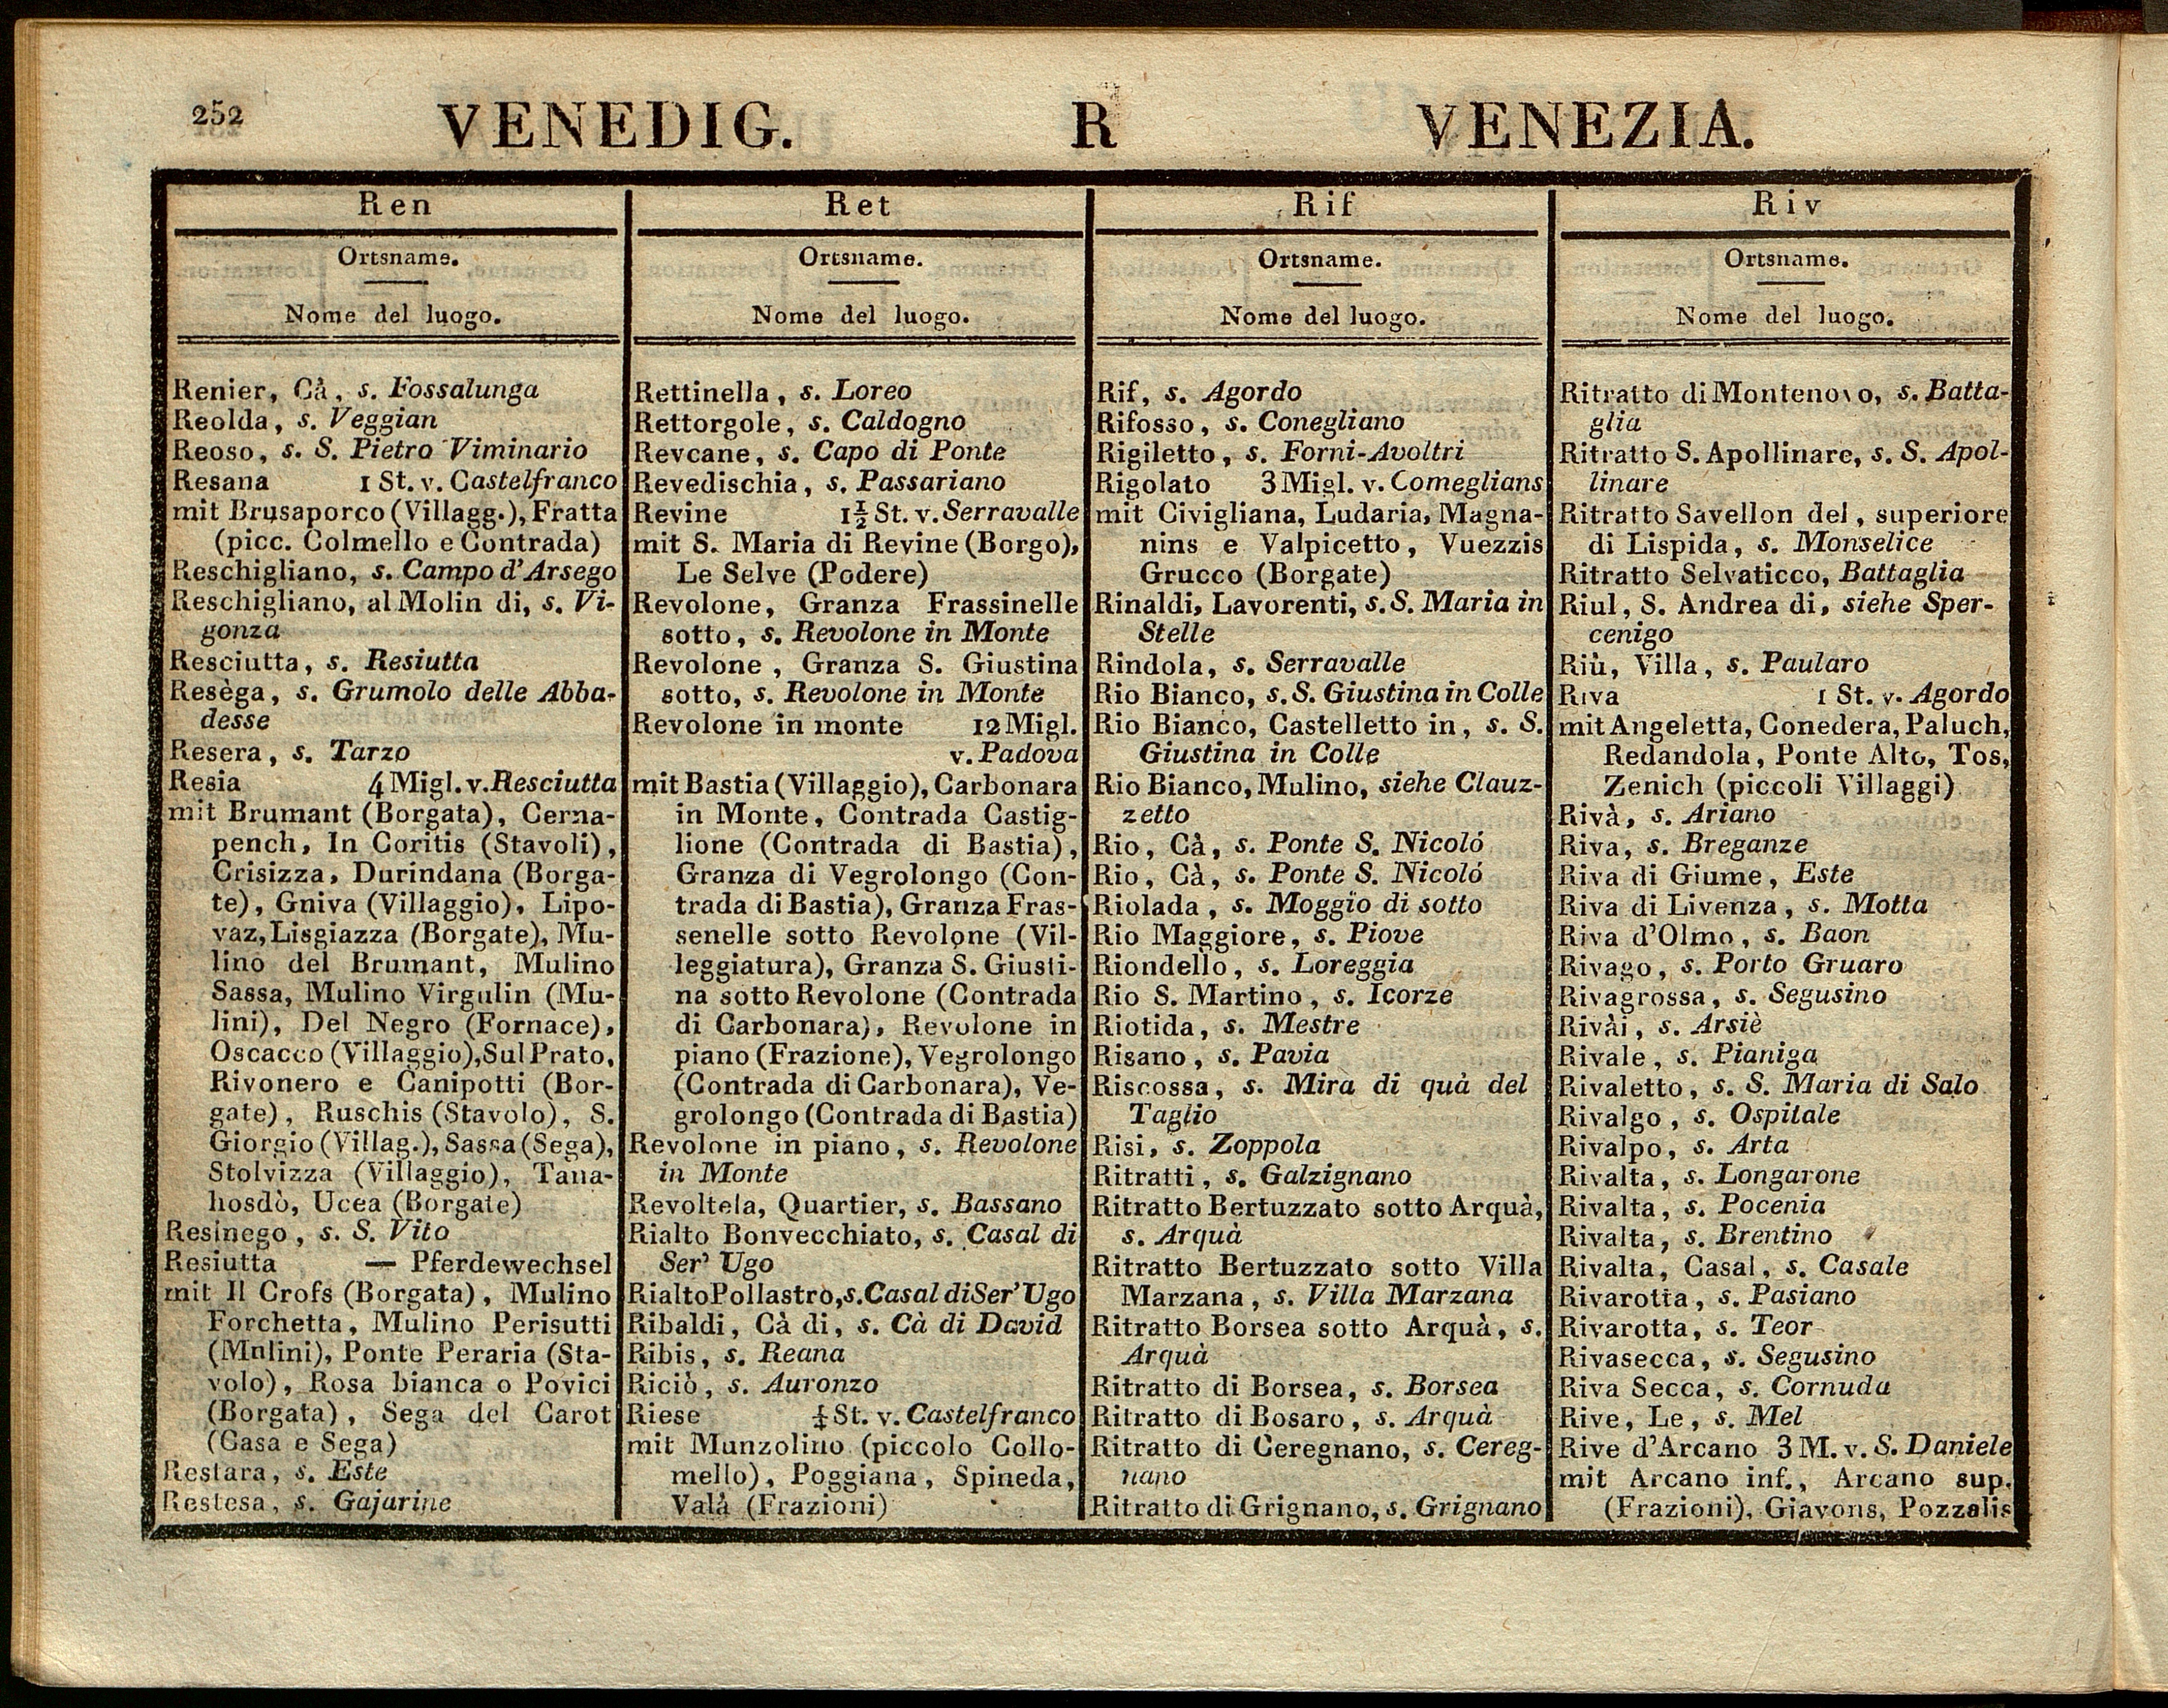 252
VENEDIG. R VENEZIA.
Ren
Ortsname.
Nome del luogo.
Renier, Cà, s. Fossalunga
Reolda, s. Veggian
Reoso, s. S. Pietro Viminario
Resana 1 St. v. Castelfranco
mit Brusaporco (Villagg.), Fratta
(picc. Colmello e Contrada)
Reschigliano, s. Campo d'Arsego
Reschigliano, al Molin di, s. Vi-
gonza
Resciutta, s. Resiutta
Resèga, s. Grumolo delle Abba-
desse
Resera, s. Tarzo
Resia 4 Migl. v. Resciutta
mit Brumant (Borgata), Cerna-
pench, In Coritis (Stavoli),
Crisizza, Durindana (Borga-
te), Gniva (Villaggio), Lipo-
vaz, Lisgiazza (Borgate), Mu-
lino del Brumant, Mulino
Sassa, Mulino Virgulin (Mu-
lini), Del Negro (Fornace),
Oscacco (Villaggio), Sul Prato,
Rivonero e Canipotti (Bor-
gate), Ruschis (Stavolo), S.
Giorgio (Villag.), Sassa (Sega),
Stolvizza (Villaggio), Tana-
hosdò, Ucea (Borgate)
Resinego, s. S. Vito
Resiutta — Pferdewechsel
mit Il Crofs (Borgata), Mulino
Forchetta, Mulino Perisutti
(Mnlini), Ponte Peraria (Sta-
volo), Rosa bianca o Povici
(Borgata), Sega del Carot
(Casa e Sega)
Restara, s. Este
Restesa, s. Gajarine
Ret
Ortsname.
Nome del luogo.
Rettinella, s. Loreo
Rettorgole, s. Caldogno
Revcane, s. Capo di Ponte
Revedischia, s. Passariano
Revine 1½ St. v. Serravalle
mit S. Maria di Revine (Borgo),
Le Selve (Podere)
Revolone, Granza Frassinelle
sotto, s. Revolone in Monte
Revolone, Granza S. Giustina
sotto, s. Revolone in Monte
Revolone in monte 12 Migl.
v. Padova
mit Bastia (Villaggio), Carbonara
in Monte, Contrada Castig-
lione (Contrada di Bastia),
Granza di Vegrolongo (Con-
trada di Bastia), Granza Fras-
senelle sotto Revolone (Vil-
leggiatura), Granza S. Giusti-
na sotto Revolone (Contrada
di Carbonara), Revolone in
piano (Frazione), Vegrolongo
(Contrada di Carbonara), Ve-
grolongo (Contrada di Bastia)
Revolone in piano, s. Revolone
in Monte
Revoltela, Quartier, s. Bassano
Rialto Bonvecchiato, s. Casal di
Ser' Ugo
Rialto Pollastro, s. Casal di Ser' Ugo
Ribaldi, Cà di, s. Cà di David
Ribis, s. Reana
Riciò, s. Auronzo
Riese St. v. Castelfranco
mit Munzolino (piccolo Collo-
mello), Poggiana, Spineda,
Valà (Frazioni)
Rif
Ortsname.
Nome del luogo.
Rif, s. Agordo
Rifosso, s. Conegliano
Rigiletto, s. Forni-Avoltri
Rigolato 3 Migl. v. Comeglians
mit Civigliana, Ludaria, Magna-
nins e Valpicetto, Vuezzis
Grucco (Borgate)
Rinaldi, Lavorenti, s. S. Maria in
Stelle
Rindola, s. Serravalle
Rio Bianco, s. S. Giustina in Colle
Rio Bianco, Castelletto in, s. S.
Giustina in Colle
Rio Bianco, Mulino, siehe Clauz-
zetto
Rio, Cà, s. Ponte S. Nicoló
Rio, Cà, s. Ponte S. Nicoló
Riolada, s. Moggio di sotto
Rio Maggiore, s. Piove
Riondello, s. Loreggia
Rio S. Martino, s. Icorze
Riotida, s. Mestre
Risano, s. Pavia
Riscossa, s. Mira di quà del
Taglio
Risi, s. Zoppola
Ritratti, s. Galzignano
Ritratto Bertuzzato sotto Arquà,
s. Arquà
Ritratto Bertuzzato sotto Villa
Marzana, s. Villa Marzana
Ritratto Borsea sotto Arquà, s.
Arquà
Ritratto di Borsea, s. Borsea
Ritratto di Bosaro, s. Arquà
Ritratto di Ceregnano, s. Cereg-
nano
Ritratto di Grignano, s. Grignano
Riv
Ortsname.
Nome del luogo.
Ritratto di Montenovo, s. Batta-
glia
Ritratto S. Apollinare, s. S. Apol-
linare
Ritratto Savellon del, superiore
di Lispida, s. Monselice
Ritratto Selvaticco, Battaglia
Riul, S. Andrea di, siehe Sper-
cenigo
Riù, Villa, s. Paularo
Riva 1 St. v. Agordo
mit Angeletta, Conedera, Paluch,
Redandola, Ponte Alto, Tos,
Zenich (piccoli Villaggi)
Rivà, s. Ariano
Riva, s. Breganze
Riva di Giume, Este
Riva di Livenza, s. Motta
Riva d'Olmo, s. Baon
Rivago, s. Porto Gruaro
Rivagrossa, s. Segusino
Rivài, s. Arsiè
Rivale, s. Pianiga
Rivaletto, s. S. Maria di Salo
Rivalgo, s. Ospitale
Rivalpo, s. Arta
Rivalta, s. Longarone
Rivalta, s. Pocenia
Rivalta, s. Brentino
Rivalta, Casal, s. Casale
Rivarotta, s. Pasiano
Rivarotta, s. Teor
Rivasecca, s. Segusino
Riva Secca, s. Cornuda
Rive, Le, s. Mel
Rive d'Arcano 3 M. v. S. Daniele
mit Arcano inf., Arcano sup.
(Frazioni), Giavons, Pozzalis